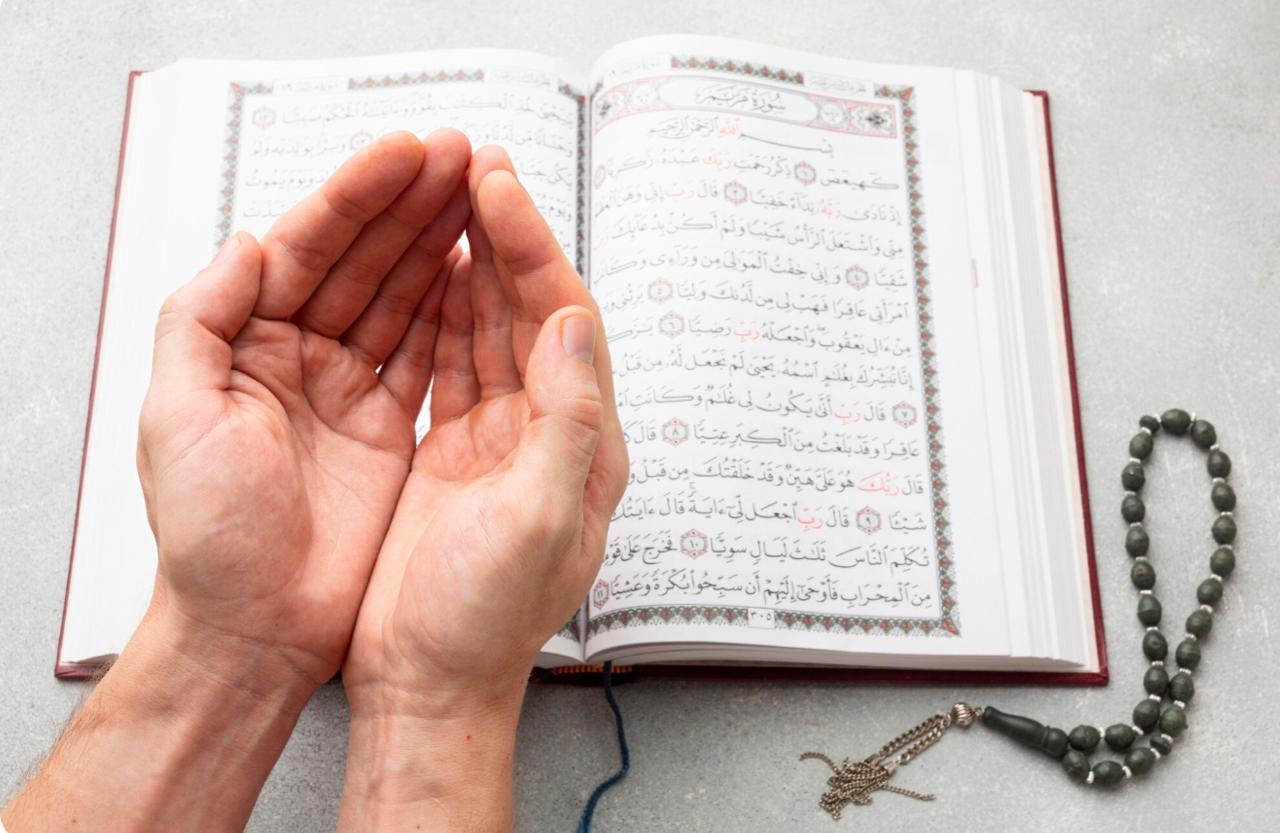 سُورَةُ مَرْيَمَ
بِسْمِ ٱللَّهِ ٱلرَّحْمَٰنِ ٱلرَّحِيمِ
كٓهيعٓصٓ ١ ذِكْرُ رَحْمَتِ رَبِّكَ عَبْدَهُۥ زَكَرِيَّآ
إِذْ نَادَىٰ رَبَّهُۥ نِدَآءً خَفِيًّا ٣ قَالَ رَبِّ إِنِّى وَهَنَ ٱلْعَظْمُ
مِنِّى وَٱشْتَعَلَ ٱلرَّأْسُ شَيْبًا وَلَمْ أَكُنۢ بِدُعَآئِكَ رَبِّ
شَقِيًّا ٤ وَإِنِّى خِفْتُ ٱلْمَوَٰلِىَ مِن وَرَآءِى وَكَانَتِ
ٱمْرَأَتِى عَاقِرًا فَهَبْ لِى مِن لَّدُنكَ وَلِيًّا ٥ يَرِثُنِى
مِنْ ءَالِ يَعْقُوبَ ۖ وَٱجْعَلْهُ رَبِّ رَضِيًّا ٦
إِنَّا نُبَشِّرُكَ بِغُلَٰمٍ ٱسْمُهُۥ يَحْيَىٰ لَمْ نَجْعَل لَّهُۥ مِن قَبْلُ
٧ قَالَ رَبِّ أَنَّىٰ يَكُونُ لِى غُلَٰمٌ وَكَانَتِ
عَاقِرًا وَقَدْ بَلَغْتُ مِنَ ٱلْكِبَرِ عِتِيًّا ٨ قَالَ
قَالَ رَبُّكَ هُوَ عَلَىَّ هَيِّنٌ وَقَدْ خَلَقْتُكَ مِن قَبْلُ
شَيْـًٔا ٩ قَالَ رَبِّ ٱجْعَل لِّىٓ ءَايَةً ۚ قَالَ ءَايَتُكَ
تُكَلِّمَ ٱلنَّاسَ ثَلَٰثَ لَيَالٍ سَوِيًّا ١٠ فَخَرَجَ عَلَىٰ قَوْمِهِ
مِنَ ٱلْمِحْرَابِ فَأَوْحَىٰٓ إِلَيْهِمْ أَن سَبِّحُوا۟ بُكْرَةً وَعَشِيًّا ١١
٣٠٥
يَٰيَحْيَىٰ خُذِ ٱلْكِتَٰبَ بِقُوَّةٍ ۖ وَءَاتَيْنَٰهُ ٱلْحُكْمَ صَبِيًّا ١٢
وَحَنَانًا مِّن لَّدُنَّا وَبَرًّۢا بِوَٰلِدَيْهِ وَلَمْ
يَكُن وَيَوْمَ يَمُوتُ